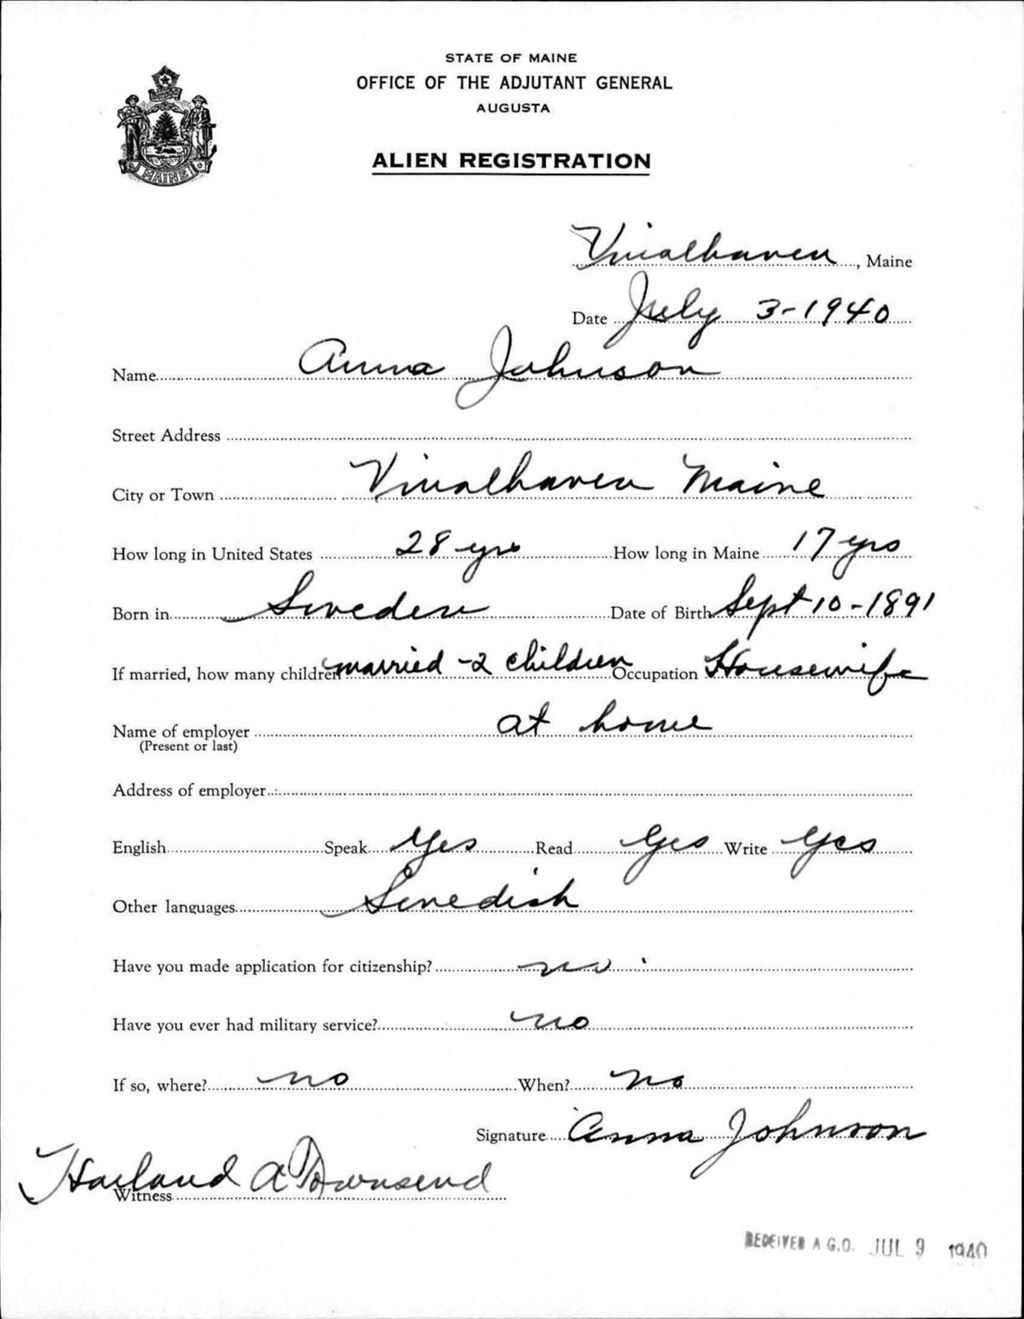 STATE OF MAINE
OFFICE OF THE ADJUTANT GENERAL
AUGUSTA
MAINE
ALIEN REGISTRATION
Vinalhaven, Maine
Date July 3-1940
Name Anna Johnson
Street Address
City or Town Vinalhaven Maine
How long in United States 28 yrs How long in Maine 17 yrs
Born in Sweden Date of Birth Sept 10-1891
If married, how many children married -2 children Occupation Housewife
Name of employer at home
(Present or last)
Address of employer
English Speak Yes Read Yes Write Yes
Other languages Swedish
Have you made application for citizenship? no
Have you ever had military service? no
If so, where? no When? no
Signature Anna Johnson
Harland A Townsend
Witness
RECEIVED A.G.O. JUL 9 1940